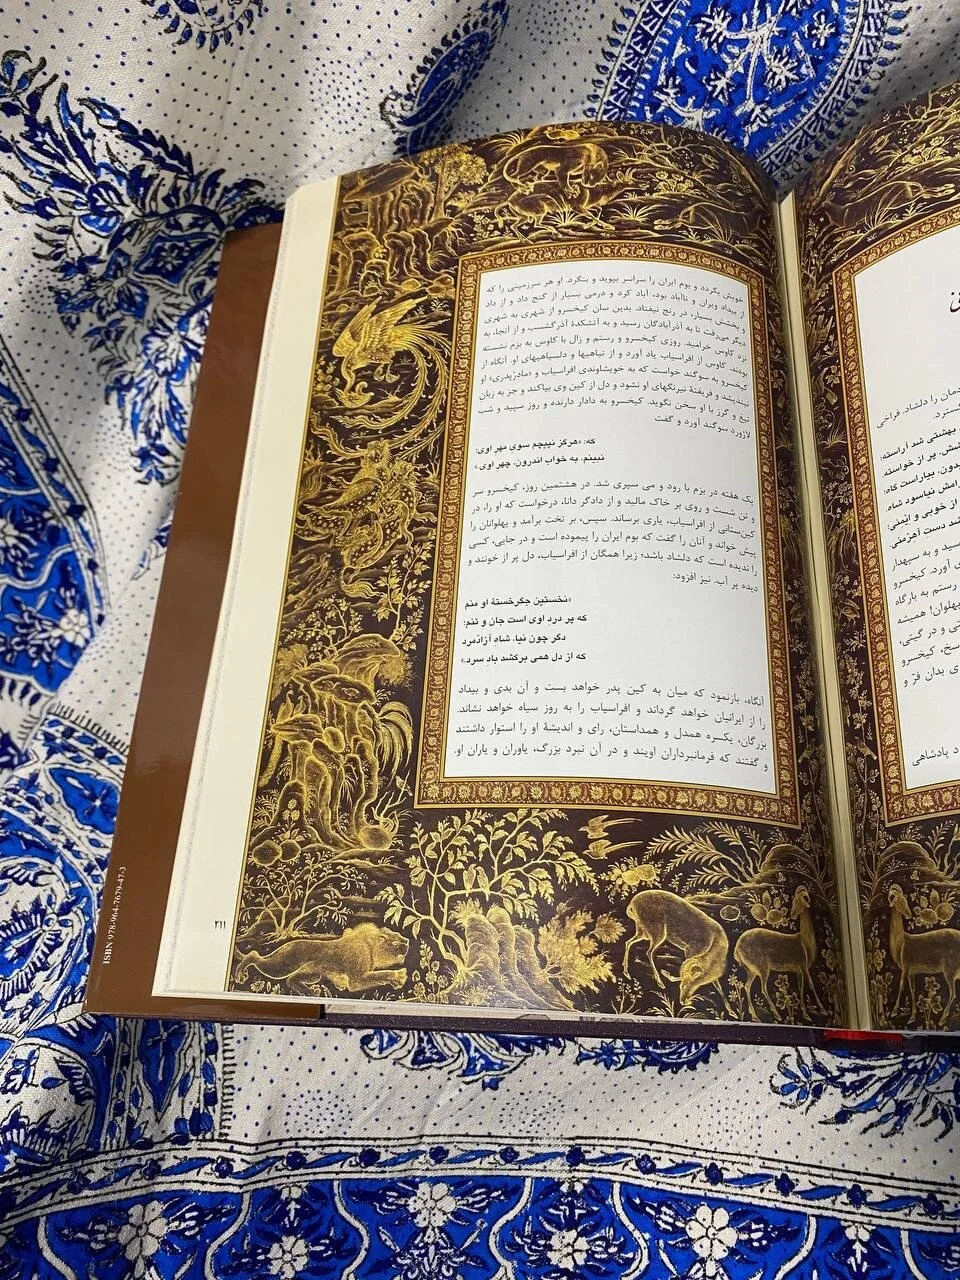 خویش بگردد و بوم ایران را سراسر بپوید و بنگرد. او هر سرزمینی را که
از بیداد ویران و ناآباد بود، آباد کرد و درمی بسیار از گنج داد و از داد
و بخشش بسیار، در رنج نیفتاد. بدین سان کیخسرو از شهری به شهری
دیگر می‌رفت تا به آذرآبادگان رسید و به آتشکدهٔ آذرگشسب و از آنجا، به
نزد کاوس خرامید. روزی کیخسرو و رستم و زال با کاوس به بزم نشسته
بودند. کاوس از افراسیاب یاد آورد و از تباهیها و دلسیاهیهای او. آنگاه از
کیخسرو به سوگند خواست که به خویشاوندی افراسیاب و «مادرْپدری» او
نیندیشد و فریفتهٔ نیرنگهای او نشود و دل از کین وی بیاکند و جز به زبان
تیغ و گرز با او سخن نگوید. کیخسرو به دادار دارنده و روز سپید و شب
لاژورد سوگند آورد و گفت
که: «هرگز نپیچم سوی مهر اوی؛
نبینم، به خواب اندرون، چهر اوی.»
یک هفته در بزم با رود و می سپری شد. در هشتمین روز، کیخسرو سر
و تن شست و روی بر خاک مالید و از دادگر دانا، درخواست که او را، در
کین‌ستانی از افراسیاب، یاری برساند. سپس، بر تخت برآمد و پهلوانان را
پیش خواند و آنان را گفت که بوم ایران را پیموده است و در جایی، کسی
را ندیده است که دلشاد باشد؛ زیرا همگان از افراسیاب، دل پر از خونند و
دیده پر آب. نیز افزود:
«نخستین جگرخستهٔ او منم
که پر درد اوی است جان و تنم؛
دگر چون نیا، شاه آزادْمرد
که از دل همی برکشد باد سرد.»
آنگاه، بازنمود که میان به کین پدر خواهد بست و آن بدی و بیداد
را از ایرانیان خواهد گرداند و افراسیاب را به روز سیاه خواهد نشاند.
بزرگان، یکسره همدل و همداستان، رای و اندیشهٔ او را استوار داشتند
و گفتند که فرمانبرداران اویند و در آن نبرد بزرگ، یاوران و یاران او.
۲۱۱
ISBN 978-964-7679-47-3
دمان را دلشاد. فراخی
گسترد.
بهشتی شد آراسته؛
پر از خواسته
بیاراست گاه؛
نیاسود شاه.
از خوبی و ایْمنی؛
شد دست آهرْمنی.
رسید و به سپهدار
آورد. کیخسرو
رستم به بارگاه
پهلوان! همیشه
و در گیتی،
کیخسرو
بدان فرّ و
پادشاهی